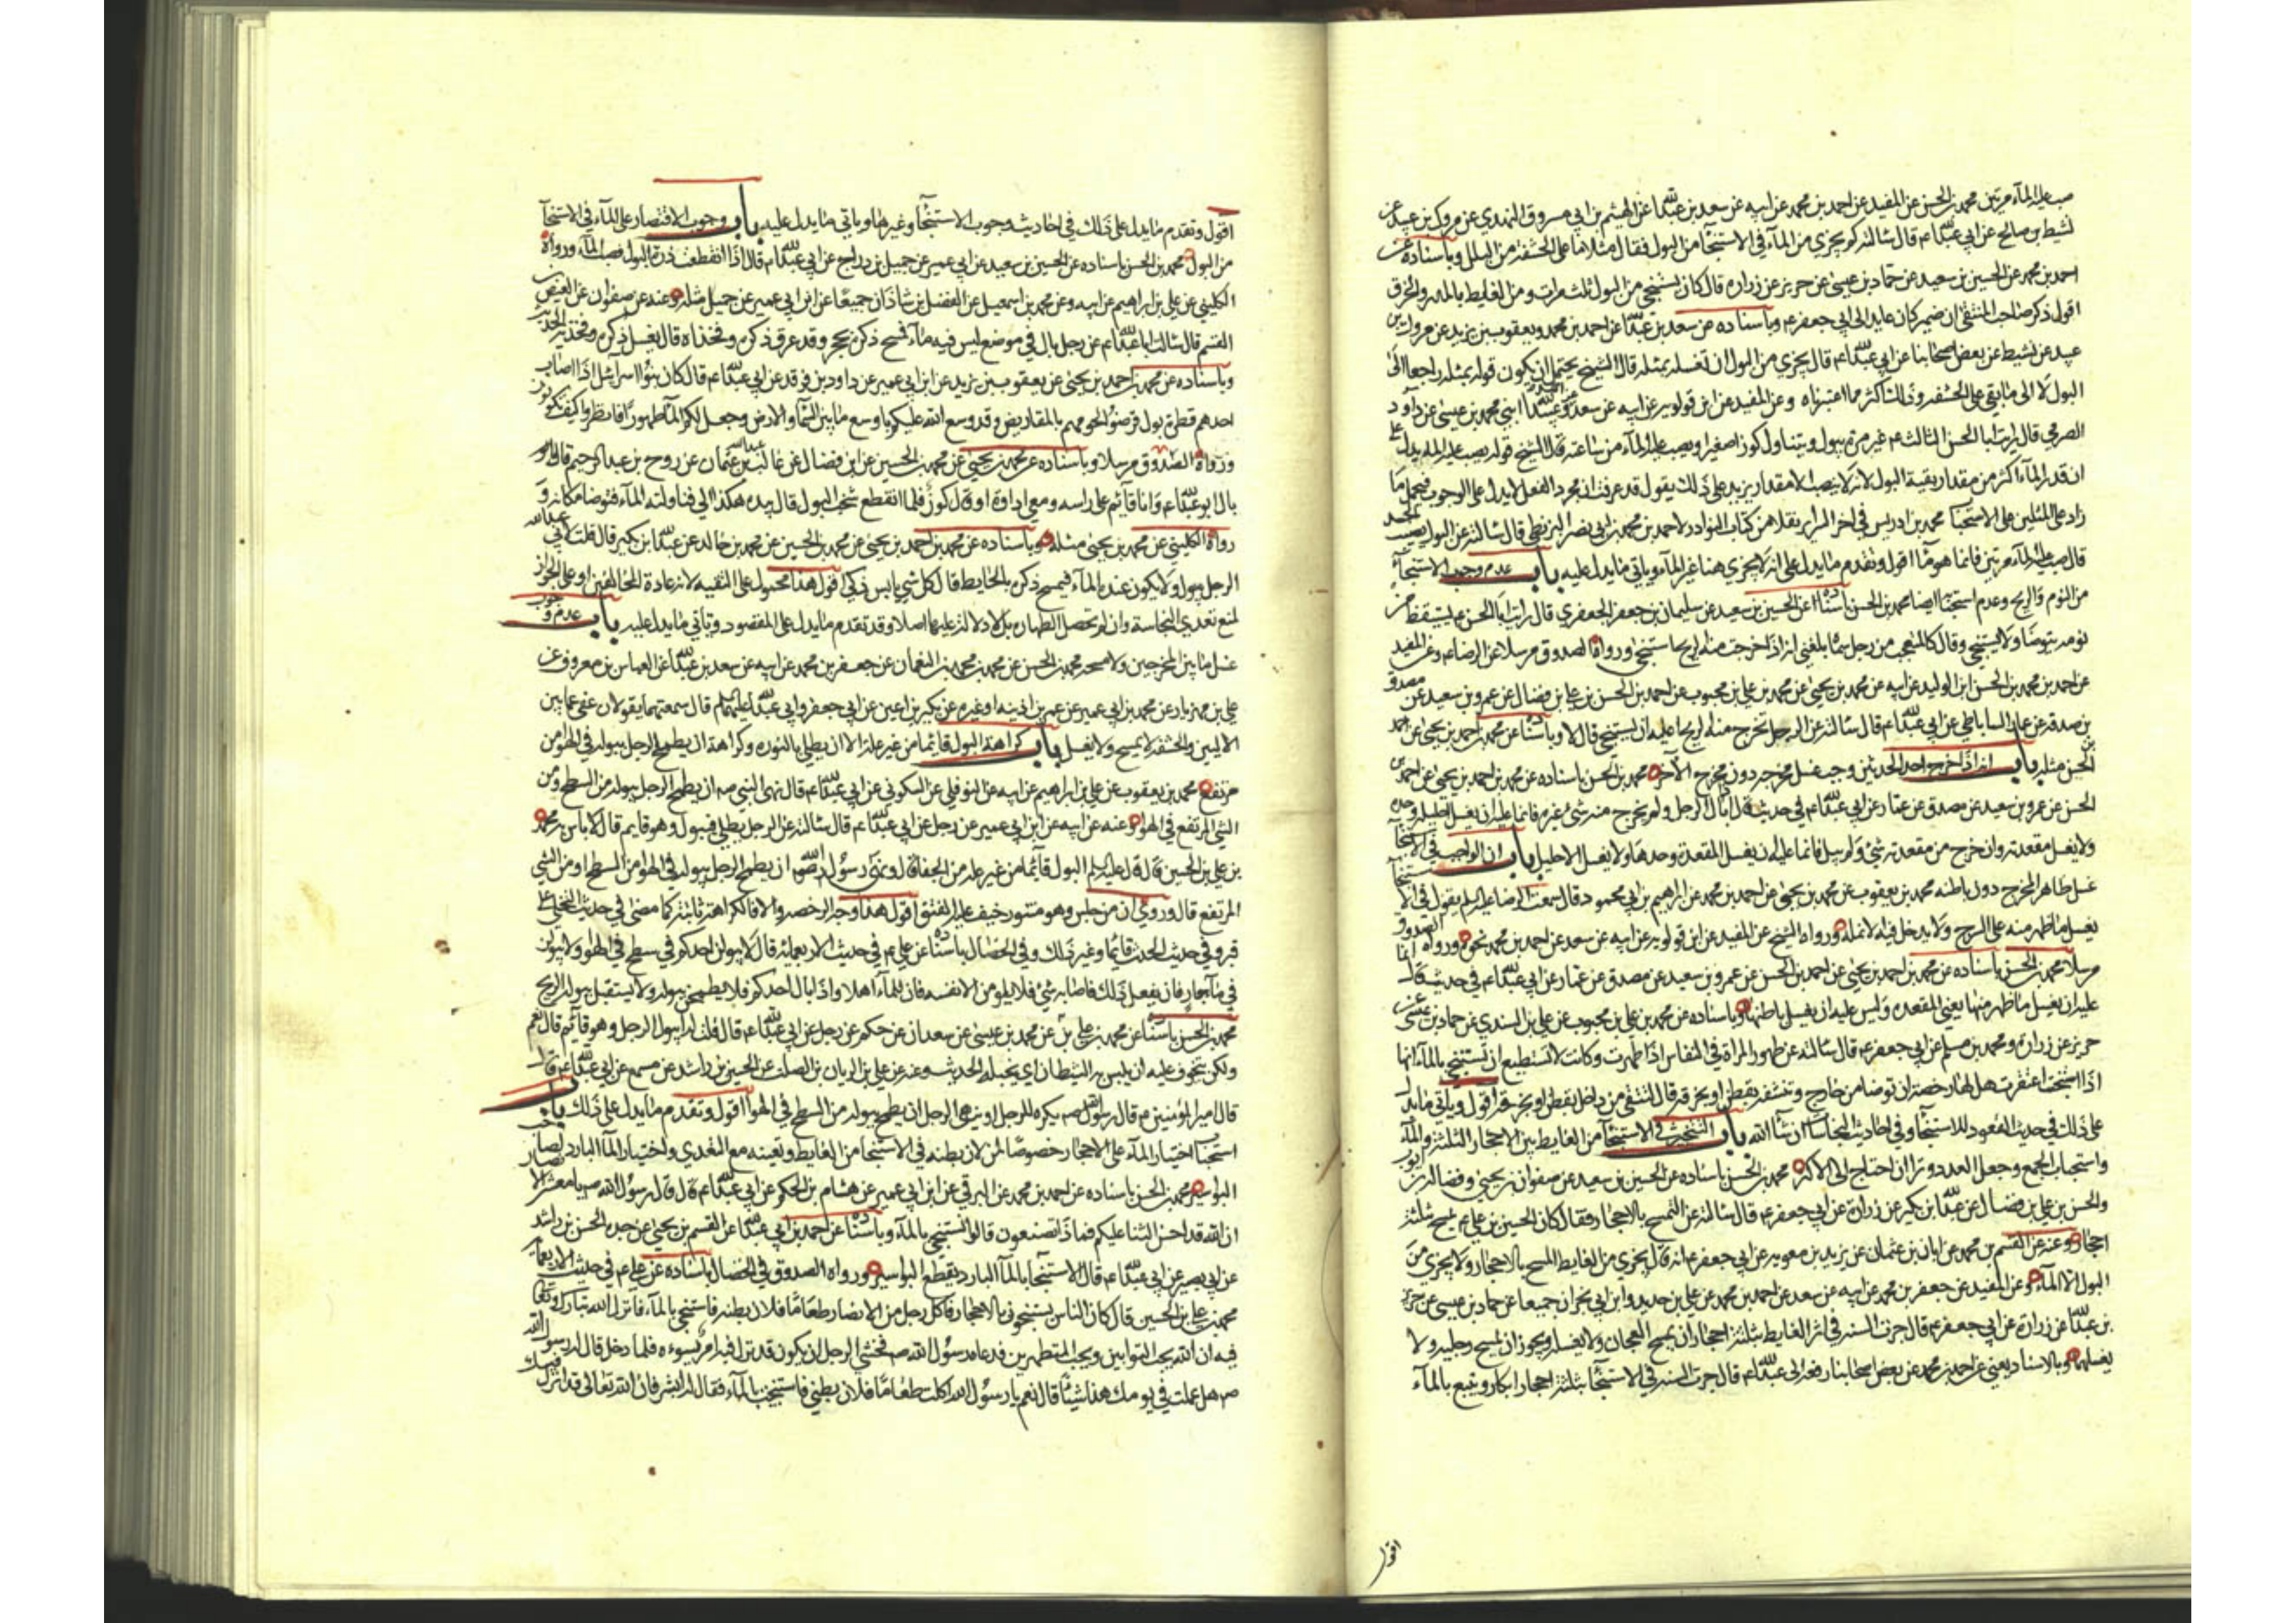 صب عليه الماء مرتين محمد بن الحسن عن المفيد عن احمد بن محمد عن ابيه عن سعد بن عبدالله عن الهيثم بن ابي مسروق النهدي عن مروك بن عبيد عن
نشيط بن صالح عن ابي عبدالله ع قال سالته كم يجزي من الماء في الاستنجآ من البول فقال مثلا ما على الحشفة من البلل وباسناده عن
احمد بن محمد عن الحسين بن سعيد عن حماد بن عيسى عن حريز عن زرارة قال كان يستنجي من البول ثلث مرات ومن الغايط بالمدر والخرق
اقول ذكر صاحب المنتقى ان ضمير كان عايد الى ابي جعفر ع وباسناده عن سعد بن عبدالله عن احمد بن محمد ويعقوب بن يزيد عن مروك بن
عبيد عن نشيط عن بعض اصحابنا عن ابي عبدالله ع قال يجزي من البول ان تغسله بمثله قال الشيخ يحتمل ان يكون قوله بمثله راجعا الى
البول لا الى ما بقي على الحشفة وذلك اكثر مما اعتبرناه وعن المفيد عن ابن قولويه عن ابيه عن سعد عن احمد وعبدالله ابني محمد بن عيسى عن داود
الصرمي قال رايت ابا الحسن الثالث ع غير مرة يبول ويتناول كوزا صغيرا ويصب عليه الماء من ساعته قال الشيخ قوله يصب عليه الماء يدل على
ان قدر الماء اكثر من مقدار بقية البول لانه لا ينصب الا مقدار يزيد على ذلك يقول قد عرفت ان مجرد الفعل لا يدل على الوجوب فيحمل ما
زاد على المثلين على الاستحباب محمد بن ادريس في اخر السراير نقلا من كتاب النوادر لاحمد بن محمد بن ابي نصر البزنطي قال سالته عن البول يصيب الجسد
قال صب عليه الماء مرتين فانما هو ماء اقول وتقدم ما يدل على انه لا يجزي هنا غير الماء وياتي ما يدل عليه باب عدم وجوب الاستنجآ
من النوم والريح وعدم استحبابه ايضا محمد بن الحسن باسناده عن الحسين بن سعيد عن سليمان بن جعفر الجعفري قال رايت ابا الحسن ع يستيقظ من
نومه يتوضا ولا يستنجي وقال كالمتعجب من رجل سماه بلغني انه اذا خرجت منه الريح استنجى ورواه الصدوق مرسلا عن الرضا ع وعن المفيد
عن احمد بن محمد بن الحسن ابن الوليد عن ابيه عن محمد بن يحيى عن محمد بن علي بن محبوب عن احمد بن الحسن بن علي بن فضال عن عمرو بن سعيد عن مصدق
بن صدقة عن عمار الساباطي عن ابي عبدالله ع قال سالته عن الرجل تخرج منه الريح اعليه ان يستنجي قال لا وباسناده عن محمد بن احمد بن يحيى عن احمد بن
الحسن مثله باب انه اذا خرج احد الحدثين وجب غسل مخرجه دون مخرج الآخر محمد بن الحسن باسناده عن محمد بن احمد بن يحيى عن احمد بن
الحسن عن عمرو بن سعيد عن مصدق عن عمار عن ابي عبدالله ع في حديث قال اذا بال الرجل ولم يخرج منه شئ غيره فانما عليه ان يغسل احليله وحده
ولا يغسل مقعدته وان خرج من مقعدته شئ ولم يبل فانما عليه ان يغسل المقعدة وحدها ولا يغسل الاحليل باب ان الواجب في الاستنجآ
غسل ظاهر المخرج دون باطنه محمد بن يعقوب عن محمد بن يحيى عن احمد بن محمد عن ابراهيم بن ابي محمود قال سمعت الرضا عليه السلم يقول في الاستنجآ
يغسل ما ظهر منه على الشرج ولا يدخل فيه الانملة ورواه الشيخ عن المفيد عن ابن قولويه عن ابيه عن سعد عن احمد بن محمد نحوه ورواه الصدوق
مرسلا محمد بن الحسن باسناده عن محمد بن احمد بن يحيى عن احمد بن الحسن عن عمرو بن سعيد عن مصدق عن عمار عن ابي عبدالله ع في حديث قال انما
عليه ان يغسل ما ظهر منها يعني المقعدة وليس عليه ان يغسل باطنها وباسناده عن محمد بن علي بن محبوب عن علي بن السندي عن حماد بن عيسى عن
حريز عن زرارة ومحمد بن مسلم عن ابي جعفر ع قال سالته عن طهور المراة في النفاس اذا طهرت وكانت لا تستطيع ان تستنجي بالماء انها
اذا استنجت اعتقرت هل لها رخصة ان توضا من خارج وتنشفه بقطن او خرقة قال نعم تنقي من داخل بقطن او بخرقة اقول وياتي ما يدل
على ذلك في حديث القعود للاستنجآ وفي احاديث النجاسات ان شآ الله باب التخيير في الاستنجآ من الغايط بين الاحجار الثلثة والمآء
واستحباب الجمع وجعل العدد وترا ان احتاج الى الاكثر محمد بن الحسن باسناده عن الحسين بن سعيد عن صفوان بن يحيى وفضالة بن ايوب
والحسن بن علي بن فضال عن عبدالله بن بكير عن زرارة عن ابي جعفر ع قال سالته عن التمسح بالاحجار فقال كان الحسين بن علي ع يمسح بثلثة
احجار وعنه عن القسم بن محمد عن ابان بن عثمان عن بريد بن معوية عن ابي جعفر ع انه قال يجزي من الغايط المسح بالاحجار ولا يجزي من
البول الا الماء وعن المفيد عن جعفر بن محمد عن ابيه عن سعد عن احمد بن محمد عن علي بن حديد وابن ابي نجران جميعا عن حماد بن عيسى عن حريز
بن عبدالله عن زرارة عن ابي جعفر ع قال جرت السنة في اثر الغايط بثلثة احجار ان يمسح العجان ولا يغسله ويجوز ان يمسح رجليه ولا
يغسلهما وبالاسناد يعني عن احمد بن محمد عن بعض اصحابنا رفعه الى ابي عبدالله ع قال جرت السنة في الاستنجآ بثلثة احجار ابكار ويتبع بالمآء
اقول
اقول وتقدم ما يدل على ذلك في احاديث وجوب الاستنجآ وغيرها وياتي ما يدل عليه باب وجوب الاقتصار على المآء في الاستنجآ
من البول محمد بن الحسن باسناده عن الحسين بن سعيد عن ابي عمير عن جميل بن دراج عن ابي عبدالله ع قال اذا انقطعت درة البول فصب المآء ورواه
الكليني عن علي بن ابراهيم عن ابيه وعن محمد بن اسمعيل عن الفضل بن شاذان جميعا عن ابن ابي عمير عن جميل مثله وعنه عن صفوان عن العيص بن
القسم قال سالت ابا عبدالله ع عن رجل بال في موضع ليس فيه ماء فمسح ذكره بحجر وقد عرق ذكره وفخذاه قال يغسل ذكره وفخذيه الحديث
وباسناده عن محمد بن احمد بن يحيى عن يعقوب بن يزيد عن ابن ابي عمير عن داود بن فرقد عن ابي عبدالله ع قال كان بنو اسرائيل اذا اصاب
احدهم قطرة بول قرضوا لحومهم بالمقاريض وقد وسع الله عليكم باوسع ما بين السمآ والارض وجعل لكم المآ طهورا فانظروا كيف تكونون
ورواه الصدوق مرسلا وباسناده عن محمد بن يحيى عن محمد بن الحسين عن ابن فضال عن غالب بن عثمان عن روح بن عبد الرحيم قال
بال ابو عبدالله ع وانا قآئم على راسه ومعي اداوة او قال كوز فلما انقطع شخب البول قال بيده هكذا الي فناولته المآء فتوضا مكانه و
رواه الكليني عن محمد بن يحيى مثله وباسناده عن محمد بن احمد بن يحيى عن محمد بن الحسين عن محمد بن خالد عن عبدالله بن بكير قال قلت لابي عبدالله
الرجل يبول ولا يكون عنده المآء فيمسح ذكره بالحايط قال كل شئ يابس ذكي اقول هذا محمول على التقيه لانه عادة المخالفين او على الجواز
لمنع تعدي النجاسة وان لم تحصل الطهارة بل لا دلالة له عليها اصلا وقد تقدم ما يدل على المقصود وياتي ما يدل عليه باب عدم وجوب
غسل ما بين المخرجين ولا مسحه محمد بن الحسن عن محمد بن محمد بن النعمان عن جعفر بن محمد عن ابيه عن سعد بن عبدالله عن العباس بن معروف عن
علي بن مهزيار عن محمد بن ابي عمير عن عمر بن اذينه او غيره عن بكير بن اعين عن ابي جعفر وابي عبدالله عليهما السلم قال سمعتهما يقولان عفي عما بين
الاليين والحشفة لا يمسح ولا يغسل باب كراهة البول قائما من غير علة الا ان يطلي بالنوره وكراهة ان يطمح الرجل ببوله في الهوا من
مرتفع محمد بن يعقوب عن علي بن ابراهيم عن ابيه عن النوفلي عن السكوني عن ابي عبدالله ع قال نهى النبي ص ان يطمح الرجل ببوله من السطح ومن
الشئ المرتفع في الهوا وعنه عن ابيه عن ابن ابي عمير عن رجل عن ابي عبدالله ع قال سالته عن الرجل يطلي فيبول وهو قايم قال لا باس به محمد
بن علي بن الحسين قال قال عليه السلم البول قآئما من غير علة من الجفا قال ونهى رسول الله ص ان يطمح الرجل ببوله في الهوا من السطح او من الشئ
المرتفع قال وروي ان من جلس وهو متنور خيف عليه الفتق اقول هذا وجه الرخصة والا فالكراهة ثابتة كما مضى في حديث التخلي على
قبر وفي حديث الحدث قائما وغير ذلك وفي الخصال باسناده عن علي ع في حديث الاربعمائة قال لا يبولن احدكم في سطح في الهوا ولا يبولن
في مآء جار فان فعل ذلك فاصابه شئ فلا يلومن الا نفسه فان للمآء اهلا واذا بال احدكم فلا يطمحن ببوله ولا يستقبل ببوله الريح
محمد بن الحسن باسناده عن محمد بن علي بن عن محمد بن عيسى عن سعدان عن حكم عن رجل عن ابي عبدالله ع قال قلت له ايبول الرجل وهو قآئم قال نعم
ولكن يتخوف عليه ان يلبس به الشيطان اي يخبله الحديث وعنه عن علي بن الريان بن الصلت عن الحسين بن راشد عن مسمع عن ابي عبدالله ع قال
قال امير المؤمنين ع قال رسول الله ص يكره للرجل او ينهى الرجل ان يطمح ببوله من السطح في الهوا اقول وتقدم ما يدل على ذلك باب
استحباب اختيار المآء على الاحجار خصوصا لمن لان بطنه في الاستنجا من الغايط وتعينه مع التعدي واختيار المآ البارد لصاحب
البواسير محمد بن الحسن باسناده عن احمد بن محمد عن البرقي عن ابن ابي عمير عن هشام بن الحكم عن ابي عبدالله ع قال قال رسول الله ص يا معشر الانصار
ان الله قد احسن الثنا عليكم فماذا تصنعون قالوا نستنجي بالمآء وباسناده عن احمد بن ابي عبدالله عن القسم بن يحيى عن جده الحسن بن راشد
عن ابي بصير عن ابي عبدالله ع قال الاستنجآ بالمآ البارد يقطع البواسير ورواه الصدوق في الخصال باسناده عن علي ع في حديث الاربعمائة
محمد بن علي بن الحسين قال كان الناس يستنجون بالاحجار فاكل رجل من الانصار طعاما فلان بطنه فاستنجى بالمآء فانزل الله تبارك وتعالى
فيه ان الله يحب التوابين ويحب المتطهرين فدعاه رسول الله ص فخشي الرجل ان يكون قد نزل فيه امر يسوءه فلما دخل قال له رسول الله
ص هل عملت في يومك هذا شيئا قال نعم يا رسول الله اكلت طعاما فلان بطني فاستنجيت بالمآء فقال له ابشر فان الله تعالى قد انزل فيك